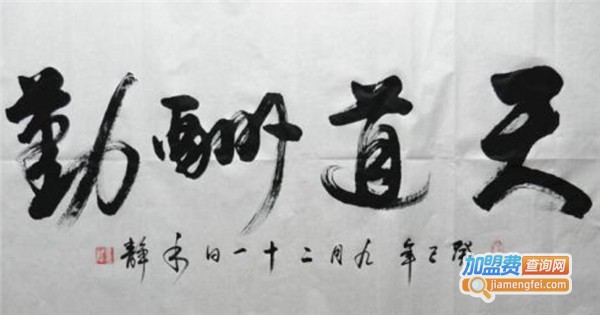 天道酬勤
癸巳年九月二十一日 静
加盟费查询网
jiamengfei.com